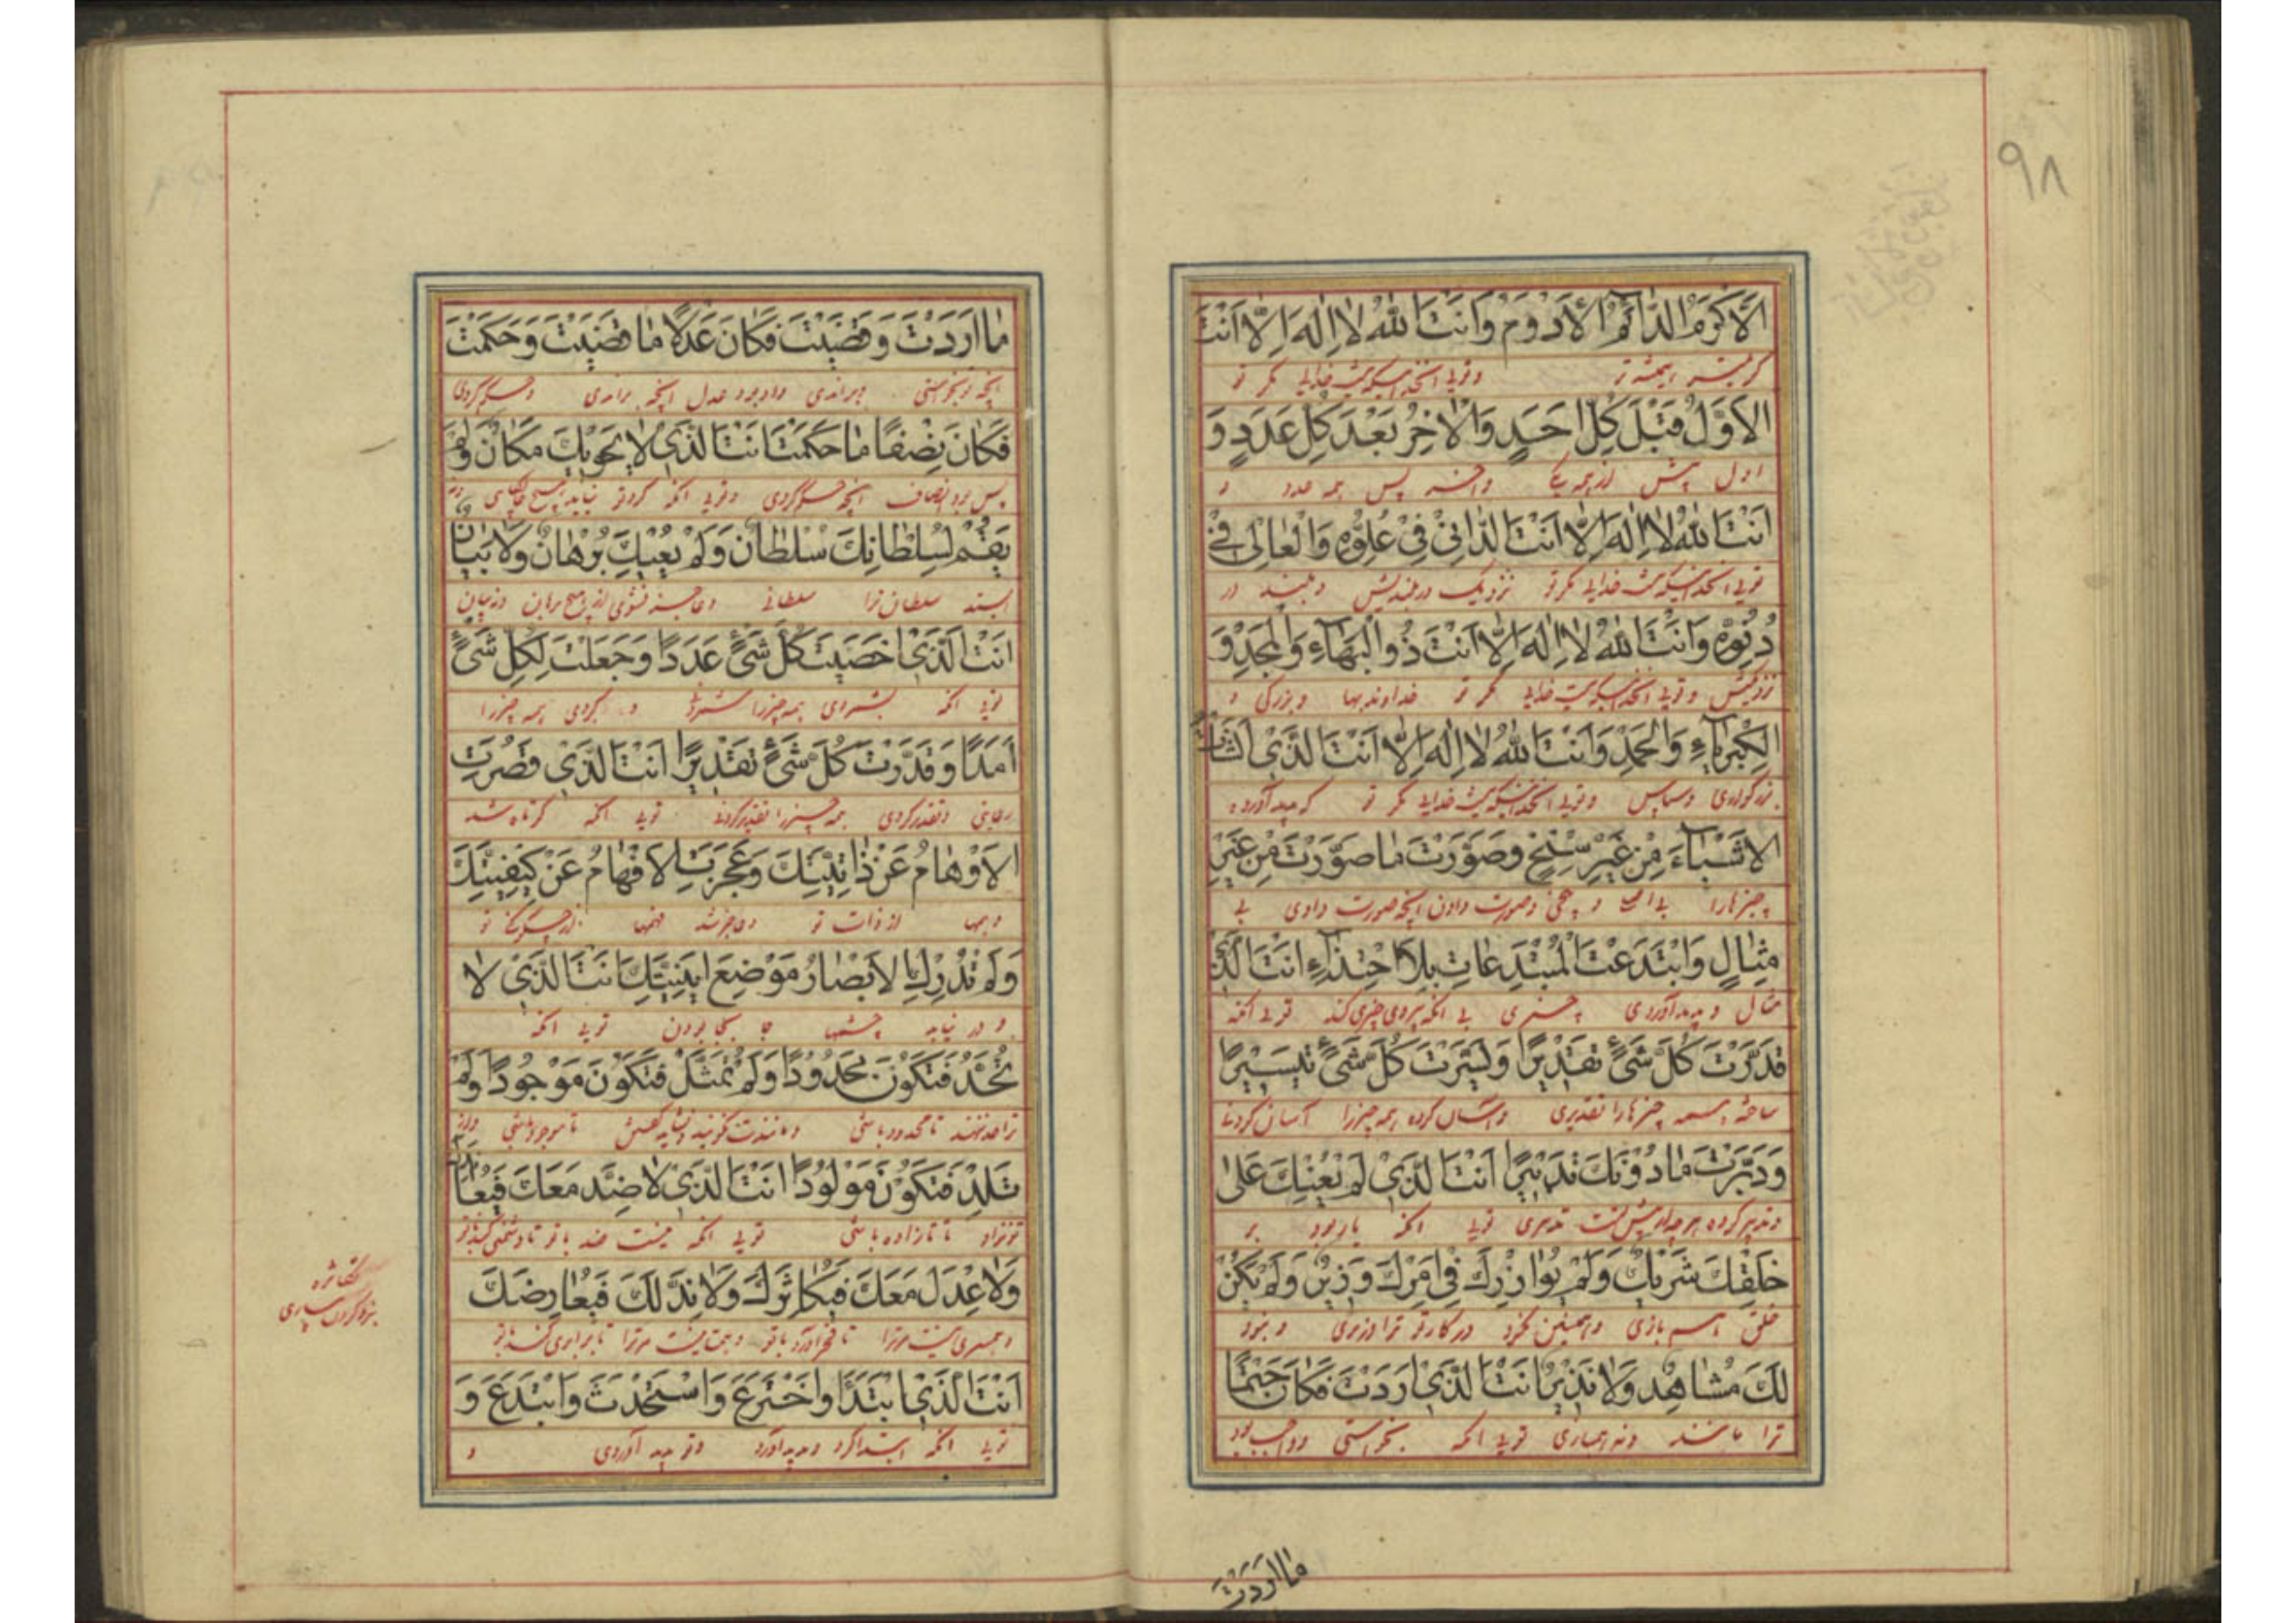 ٩٨
الْأَكْرَمُ الدَّائِمُ الْأَدْوَمُ وَأَنْتَ اللهُ لَا إِلٰهَ إِلَّا أَنْتَ
وتویی آنخدا که نیست خدایی مگر تو
الْأَوَّلُ قَبْلَ كُلِّ أَحَدٍ وَالْآخِرُ بَعْدَ كُلِّ عَدَدٍ وَ
اول پیش از همه یکی وآخر پس همه عدد و
أَنْتَ اللهُ لَا إِلٰهَ إِلَّا أَنْتَ الدَّانِي فِي عُلُوِّهِ وَالْعَالِي فِي
تویی آنخدا که نیست خدایی مگر تو نزدیک در بلندیش وبلند در
دُنُوِّهِ وَأَنْتَ اللهُ لَا إِلٰهَ إِلَّا أَنْتَ ذُو الْبَهَاءِ وَالْمَجْدِ وَ
نزدیکیش وتویی آنخدا که نیست خدایی مگر تو خداوند بها وبزرگی و
الْكِبْرِيَاءِ وَالْحَمْدِ وَأَنْتَ اللهُ لَا إِلٰهَ إِلَّا أَنْتَ الَّذِي أَنْشَأْتَ
بزرگواری وسپاس وتویی آنخدا که نیست خدایی مگر تو که پدید آورده
الْأَشْيَاءَ مِنْ غَيْرِ سِنْخٍ وَصَوَّرْتَ مَا صَوَّرْتَ مِنْ غَيْرِ
چیزها را بی اصل و بیخی وصورت دادی آنچه صورت دادی بی
مِثَالٍ وَابْتَدَعْتَ الْمُبْتَدِعَاتِ بِلَا احْتِذَاءٍ أَنْتَ الَّذِي
مثال وپدید آوردی چیزی بی آنکه پیروی چیزی کند تویی آنکه
قَدَّرْتَ كُلَّ شَيْءٍ تَقْدِيرًا وَيَسَّرْتَ كُلَّ شَيْءٍ تَيْسِيرًا
ساخته همه چیزها را تقدیری وآسان کرده همه چیز را آسان کردنی
وَدَبَّرْتَ مَا دُونَكَ تَدْبِيرًا أَنْتَ الَّذِي لَمْ يُعِنْكَ عَلَى
وتدبیر کرده تدبیری تویی آنکه یار نبود بر
خَلْقِكَ شَرِيكٌ وَلَمْ يُوَازِرْكَ فِي أَمْرِكَ وَزِيرٌ وَلَمْ يَكُنْ
خلق انبازی در کار تو ترا وزیری ونبود
لَكَ مُشَاهِدٌ وَلَا نَظِيرٌ أَنْتَ الَّذِي أَرَدْتَ فَكَانَ حَتْمًا
ترا مانند ونه همتایی تویی آنکه بخواستی وواجب بود
ما اردت
مَا أَرَدْتَ وَقَضَيْتَ فَكَانَ عَدْلًا مَا قَضَيْتَ وَحَكَمْتَ
آنچه تو بخواستی وبراندی وبود عدل آنچه براندی وحکم کردی
فَكَانَ نِصْفًا مَا حَكَمْتَ أَنْتَ الَّذِي لَا يَحْوِيكَ مَكَانٌ وَلَمْ
پس بود انصاف آنچه حکم کردی وتویی آنکه گرد تو نیاید هیچ
يَقُمْ لِسُلْطَانِكَ سُلْطَانٌ وَلَمْ يُعْيِكَ بُرْهَانٌ وَلَا بَيَانٌ
سلطان ترا سلطانی وعاجز نشوی از هیچ برهان ونه بیان
أَنْتَ الَّذِي أَحْصَيْتَ كُلَّ شَيْءٍ عَدَدًا وَجَعَلْتَ لِكُلِّ شَيْءٍ
تویی آنکه بشمردی همه چیز را وکردی همه چیز را
أَمَدًا وَقَدَّرْتَ كُلَّ شَيْءٍ تَقْدِيرًا أَنْتَ الَّذِي قَصُرَتِ
وتقدیر کردی همه چیز را تقدیر کردنی تویی آنکه کوتاه شد
الْأَوْهَامُ عَنْ ذَاتِيَّتِكَ وَعَجَزَتِ الْأَفْهَامُ عَنْ كَيْفِيَّتِكَ
وهمها از ذات تو وعاجز شد فهمها از چگونگی تو
وَلَمْ تُدْرِكِ الْأَبْصَارُ مَوْضِعَ أَيْنِيَّتِكَ أَنْتَ الَّذِي لَا
و در نیابد چشمها جا بودن تویی آنکه
تُحَدُّ فَتَكُونَ مَحْدُودًا وَلَمْ تُمَثَّلْ فَتَكُونَ مَوْجُودًا وَلَمْ
تا محدود باشی تا موجود باشی
تَلِدْ فَتَكُونَ مَوْلُودًا أَنْتَ الَّذِي لَا ضِدَّ مَعَكَ فَيُعَانِدَكَ
تا زاده باشی تویی آنکه نیست ضد با تو تا دشمنی کند با تو
وَلَا عِدْلَ مَعَكَ فَيُكَاثِرَكَ وَلَا نِدَّ لَكَ فَيُعَارِضَكَ
وهمسری نیست مرترا تا فخر آورد با تو وهمتا نیست مرترا تا برابری کند با تو
أَنْتَ الَّذِي ابْتَدَأَ وَاخْتَرَعَ وَاسْتَحْدَثَ وَابْتَدَعَ وَ
تویی آنکه ابتدا کرد وپدید آورد ونو پدید آوردی و